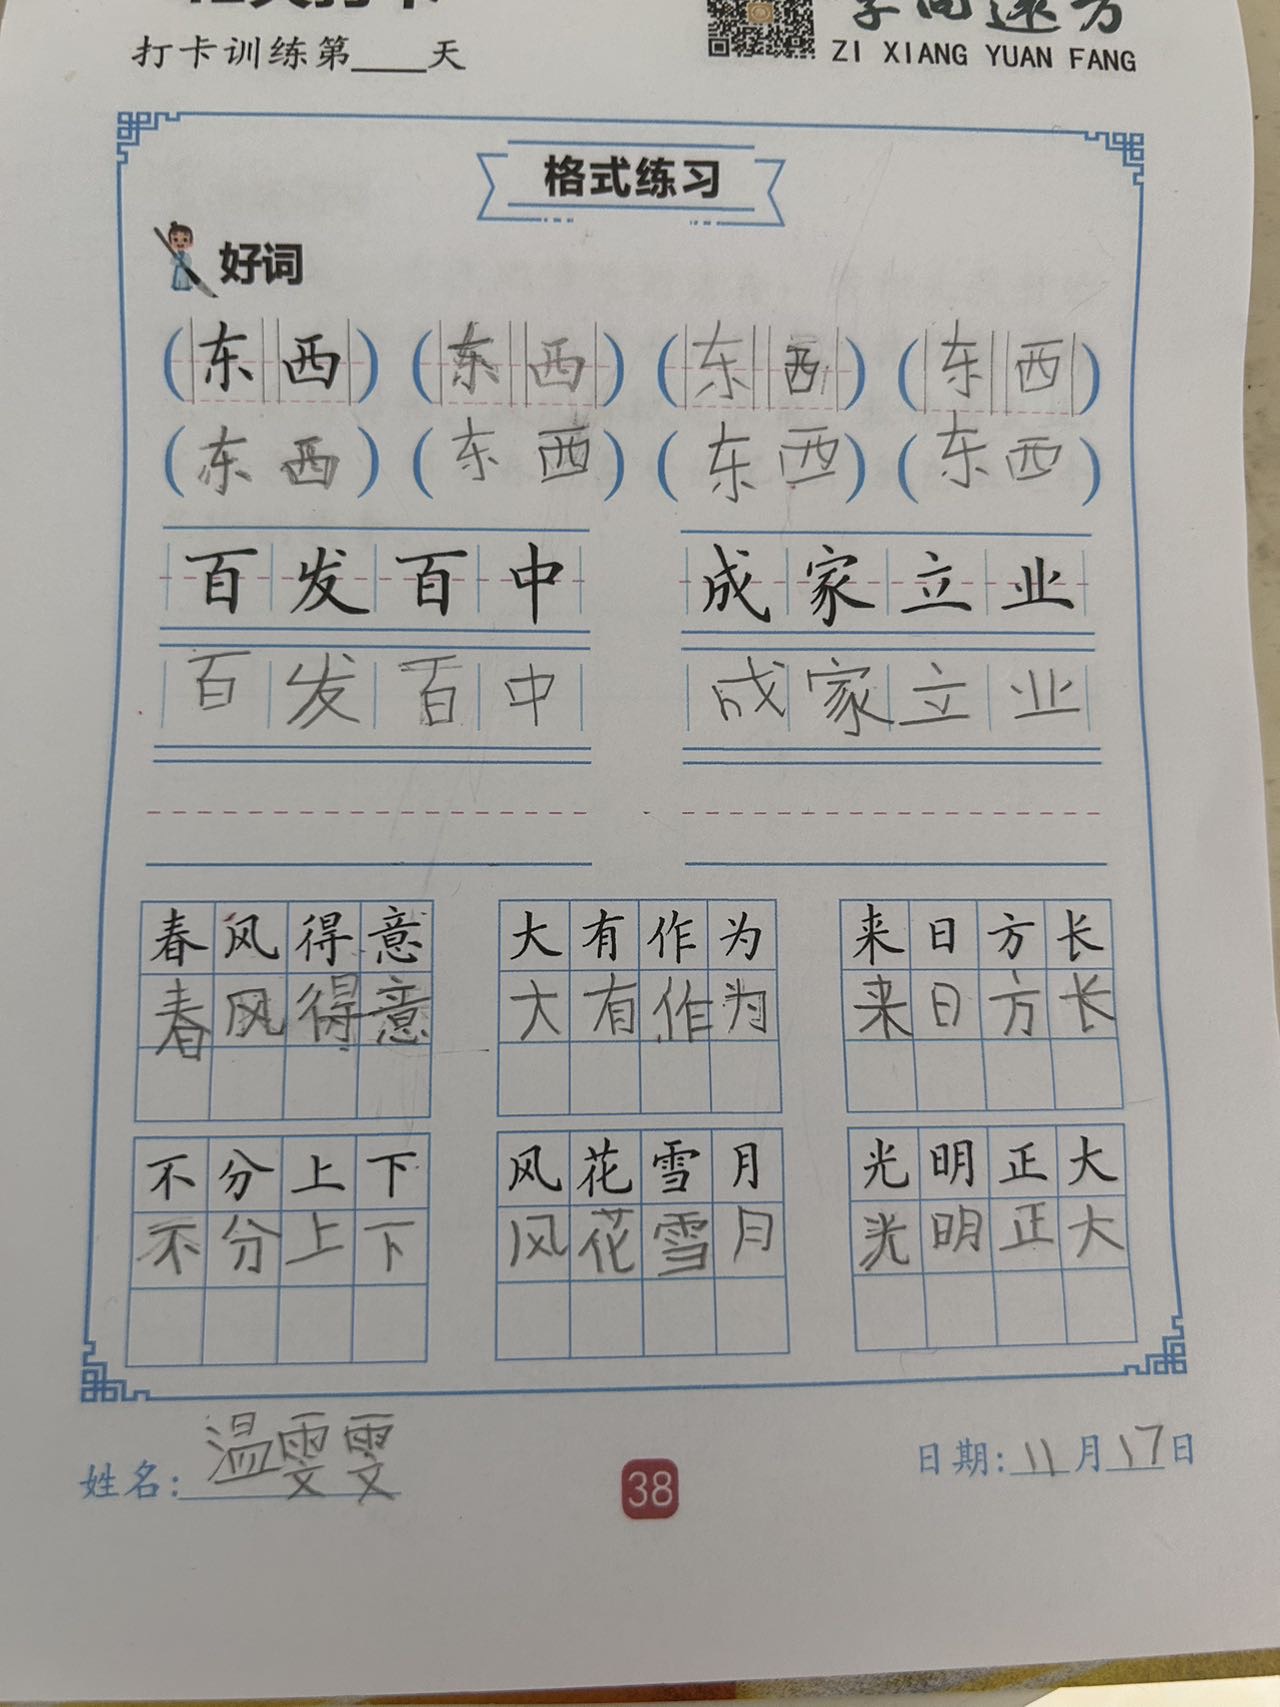 打卡训练第____天
字向远方
ZI XIANG YUAN FANG
格式练习
好词
(东西)(东西)(东西)(东西)
(东西)(东西)(东西)(东西)
百发百中 成家立业
百发百中 成家立业
春风得意 大有作为 来日方长
春风得意 大有作为 来日方长
不分上下 风花雪月 光明正大
不分上下 风花雪月 光明正大
姓名:温雯雯
38
日期:11月17日